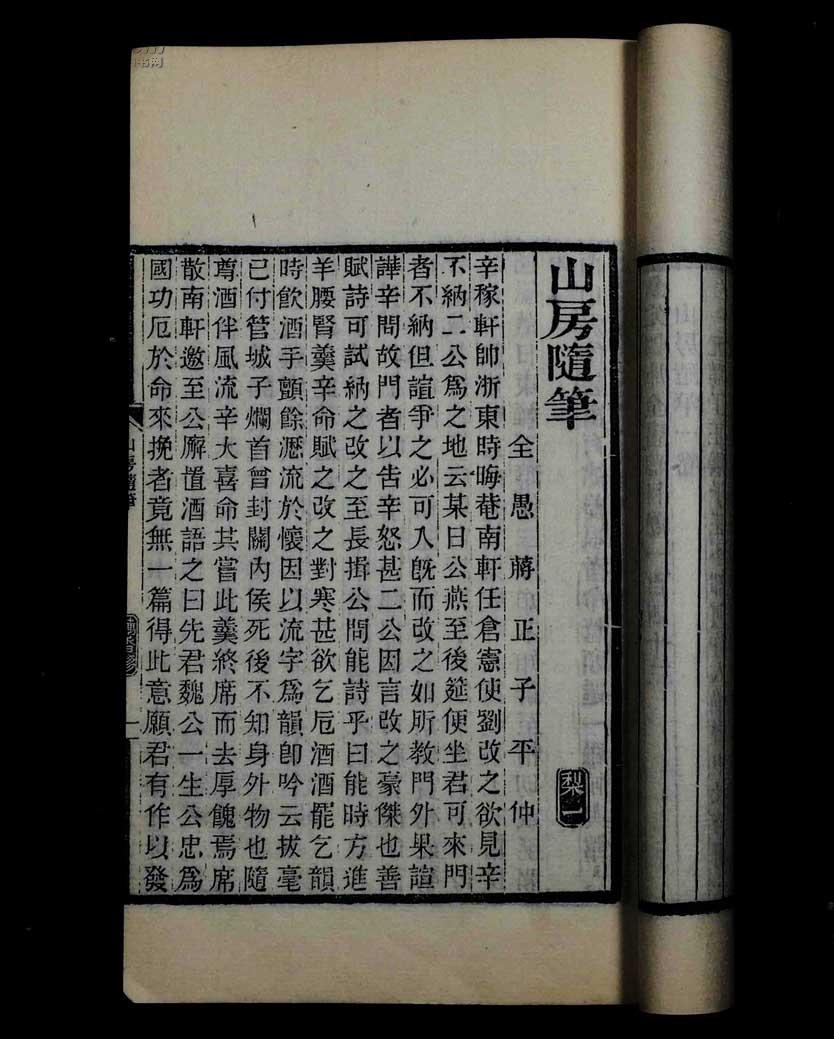 山房隨筆
梨一
全愚蔣正子平仲
辛稼軒帥浙東時晦菴南軒任倉憲使劉改之欲見辛
不納二公爲之地云某日公燕至後筵便坐君可來門
者不納但諠爭之必可入旣而改之如所敎門外果諠
譁辛問故門者以吿辛怒甚二公因言改之豪傑也善
賦詩可試納之改之至長揖公問能詩乎曰能時方進
羊腰腎羹辛命賦之改之對寒甚欲乞卮酒酒罷乞韻
時飮酒手顫餘瀝流於懷因以流字爲韻卽吟云拔毫
已付管城子爛首曾封關內侯死後不知身外物也隨
尊酒伴風流辛大喜命其嘗此羹終席而去厚餽焉席
散南軒邀至公廨置酒語之曰先君魏公一生公忠爲
國功厄於命來挽者竟無一篇得此意願君有作以發
山房隨筆
一